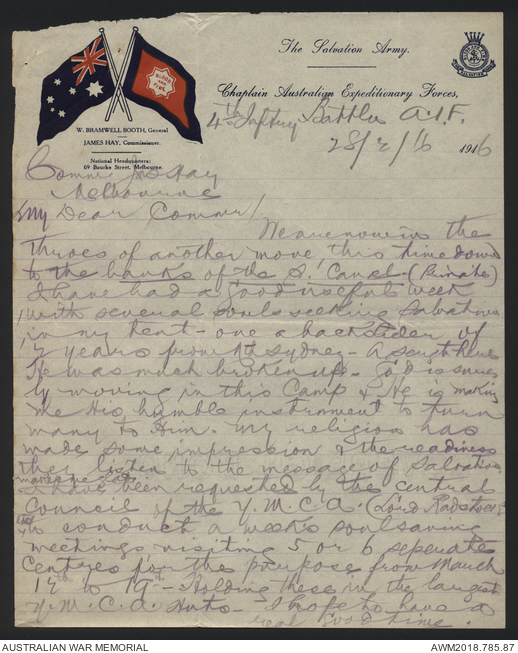 The Salvation Army.
Chaplain Australian Expeditionary Forces,
W. BRAMWELL BOOTH, General
JAMES HAY, Commissioner.
National Headquarters:
69 Bourke Street, Melbourne.
4th Inftry Battln A.I.F.
28/2/16 1916
Commr Jas Hay
Melbourne
My Dear Commr/
We are now in the
throes of another move this time down
to the banks of the S. Canal (Private)
I have had a good useful week
with several souls seeking Salvation
in my tent - one a backslider of
7 years from Sydney - A sergt here
He was much broken up - God is sure
ly moving in this Camp & He is making
me His humble instrument to turn
many to Him. My religion has
made some impression & the readiness
they listen to the message of Salvation
makes me glad
I have been requested by the central
Council of the Y.M.C.A. (Lord Radstock)
to conduct a week's soulsaving
meetings visiting 5 or 6 seperate
centres for the purpose from March
to 19th - Holding these in the largest
Y.M.C.A. Huts - I hope to have a
real good time.
AUSTRALIAN WAR MEMORIAL
AWM2018.785.87